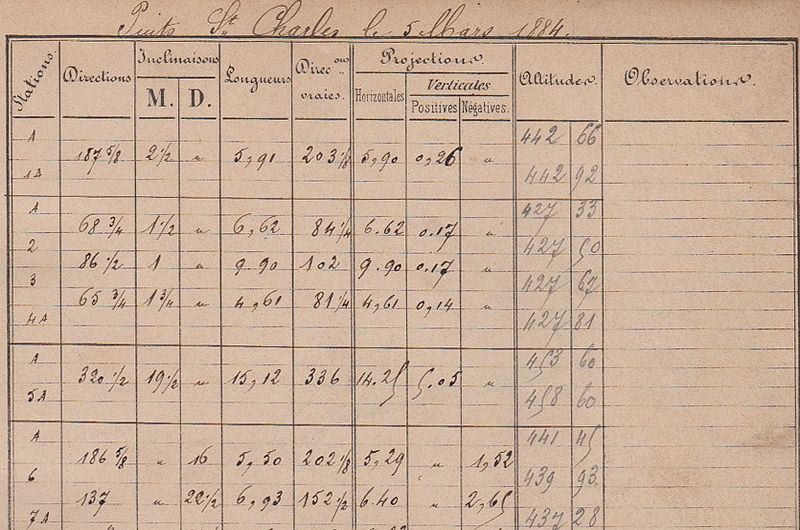 Puits St. Charles le 5 Mars 1884.
Stations. Directions Inclinaisons M. D. Longueurs Direc ons vraies. Projections. Horizontales Verticales Positives Négatives. Altitudes. Observations.
A 442 66
187 5/8 2 1/2 " 5,91 203 1/8 5,90 0,26 "
1A 442 92
A 427 33
68 3/4 1 1/2 " 6,62 84 1/4 6.62 0.17 "
2 427 50
86 1/2 1 " 9.90 102 9.90 0.17 "
3 427 67
65 3/4 1 3/4 " 4,61 81 1/4 4,61 0,14 "
4A 427 81
A 453 60
320 1/2 19 1/2 " 15,12 336 14.25 5.05 "
5A 458 60
A 441 45
186 5/8 " 16 5,50 202 1/8 5,29 " 1,52
6 439 93
137 " 22 1/2 6,93 152 1/2 6.40 " 2,65
7A 437 28